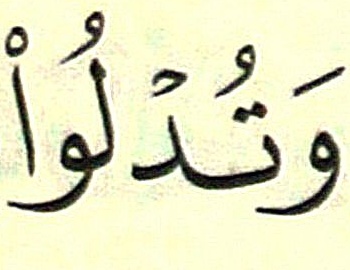 وَتُدۡلُواْ